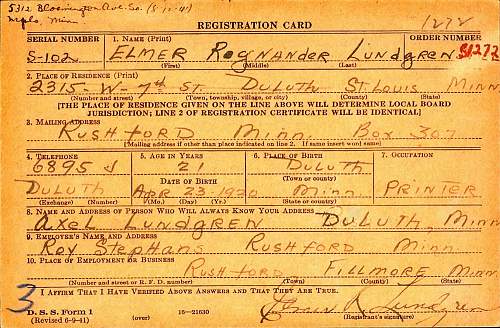 5312 Bloomington Ave. So. (5-12-41)
Mpls, Minn
REGISTRATION CARD
1272
SERIAL NUMBER 1. NAME (Print) ORDER NUMBER
S-102 ELMER Rognander Lundgren S1272
(First) (Middle) (Last)
2. PLACE OF RESIDENCE (Print)
2315-W-7th ST. DULUTH ST LOUIS MINN
(Number and street) (Town, township, village, or city) (County) (State)
[THE PLACE OF RESIDENCE GIVEN ON THE LINE ABOVE WILL DETERMINE LOCAL BOARD
JURISDICTION; LINE 2 OF REGISTRATION CERTIFICATE WILL BE IDENTICAL]
3. MAILING ADDRESS
RUSHFORD Minn. Box 307
[Mailing address if other than place indicated on line 2. If same insert word same]
4. TELEPHONE 5. AGE IN YEARS 6. PLACE OF BIRTH 7. OCCUPATION
6895 J 21 DULUTH
(Town or county)
DATE OF BIRTH
DULUTH APR 23 1920 Minn. PRINTER
(Exchange) (Number) (Mo.) (Day) (Yr.) (State or country)
8. NAME AND ADDRESS OF PERSON WHO WILL ALWAYS KNOW YOUR ADDRESS
AXEL LUNDGREN DULUTH, MINN
9. EMPLOYER'S NAME AND ADDRESS
Roy Stephans RUSHFORD Minn.
10. PLACE OF EMPLOYMENT OR BUSINESS
RUSHFORD FILLMORE Minn.
(Number and street or R. F. D. number) (Town) (County) (State)
I AFFIRM THAT I HAVE VERIFIED ABOVE ANSWERS AND THAT THEY ARE TRUE.
3
D. S. S. Form 1
(Revised 6-9-41) (over) 16-21630
Elmer R. Lundgren
(Registrant's signature)